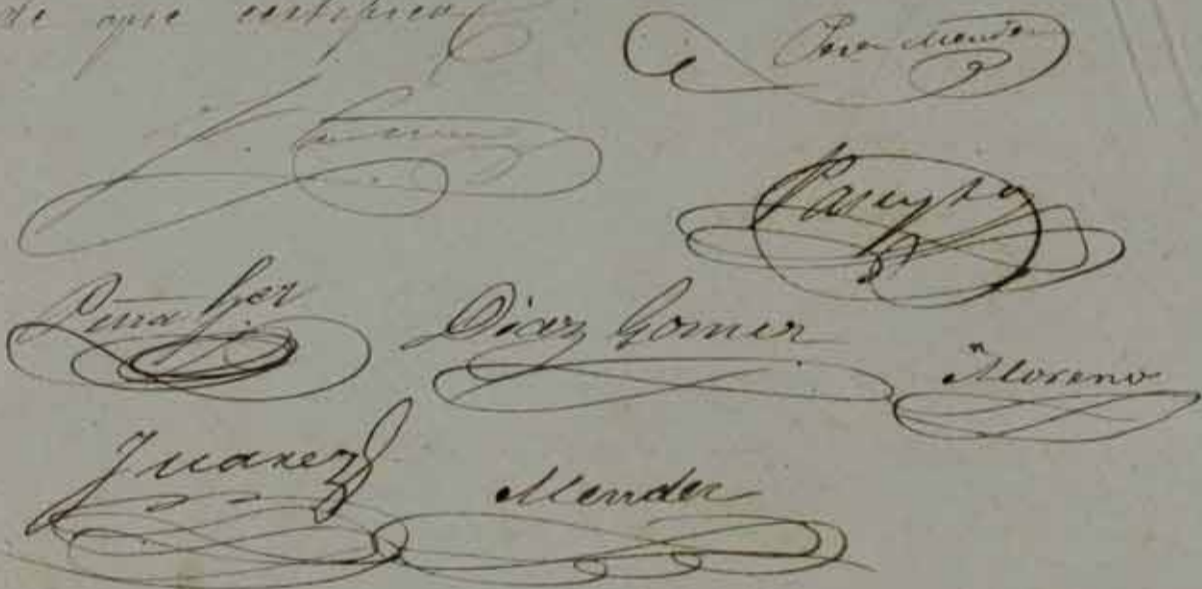 de que certifico
Pera Mendez
Peña Gez
Diaz Gomez
Moreno
Juarez
Mendez